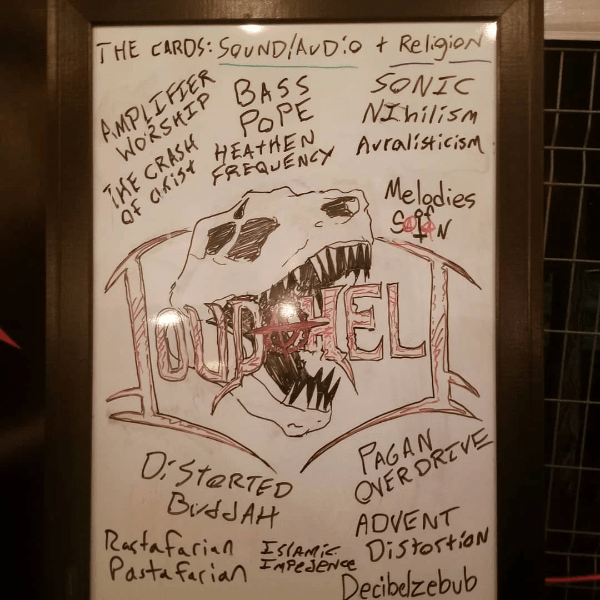 THE CARDS: SOUND/AUDiO + Religion
AMPLIFIER
WORSHIP
BASS
POPE
SONIC
NIhilism
THE CRASH
OF CHRIST
HEATHEN
FREQUENCY
Auralisticism
Melodies
OF
SATAN
LOUD AS HELL
DiSTORTED
BUddAH
PAGAN
OVERDRIVE
Rastafarian
Pastafarian
ISLAMIC
IMPEdENCE
ADVENT
DisTORTiON
Decibelzebub